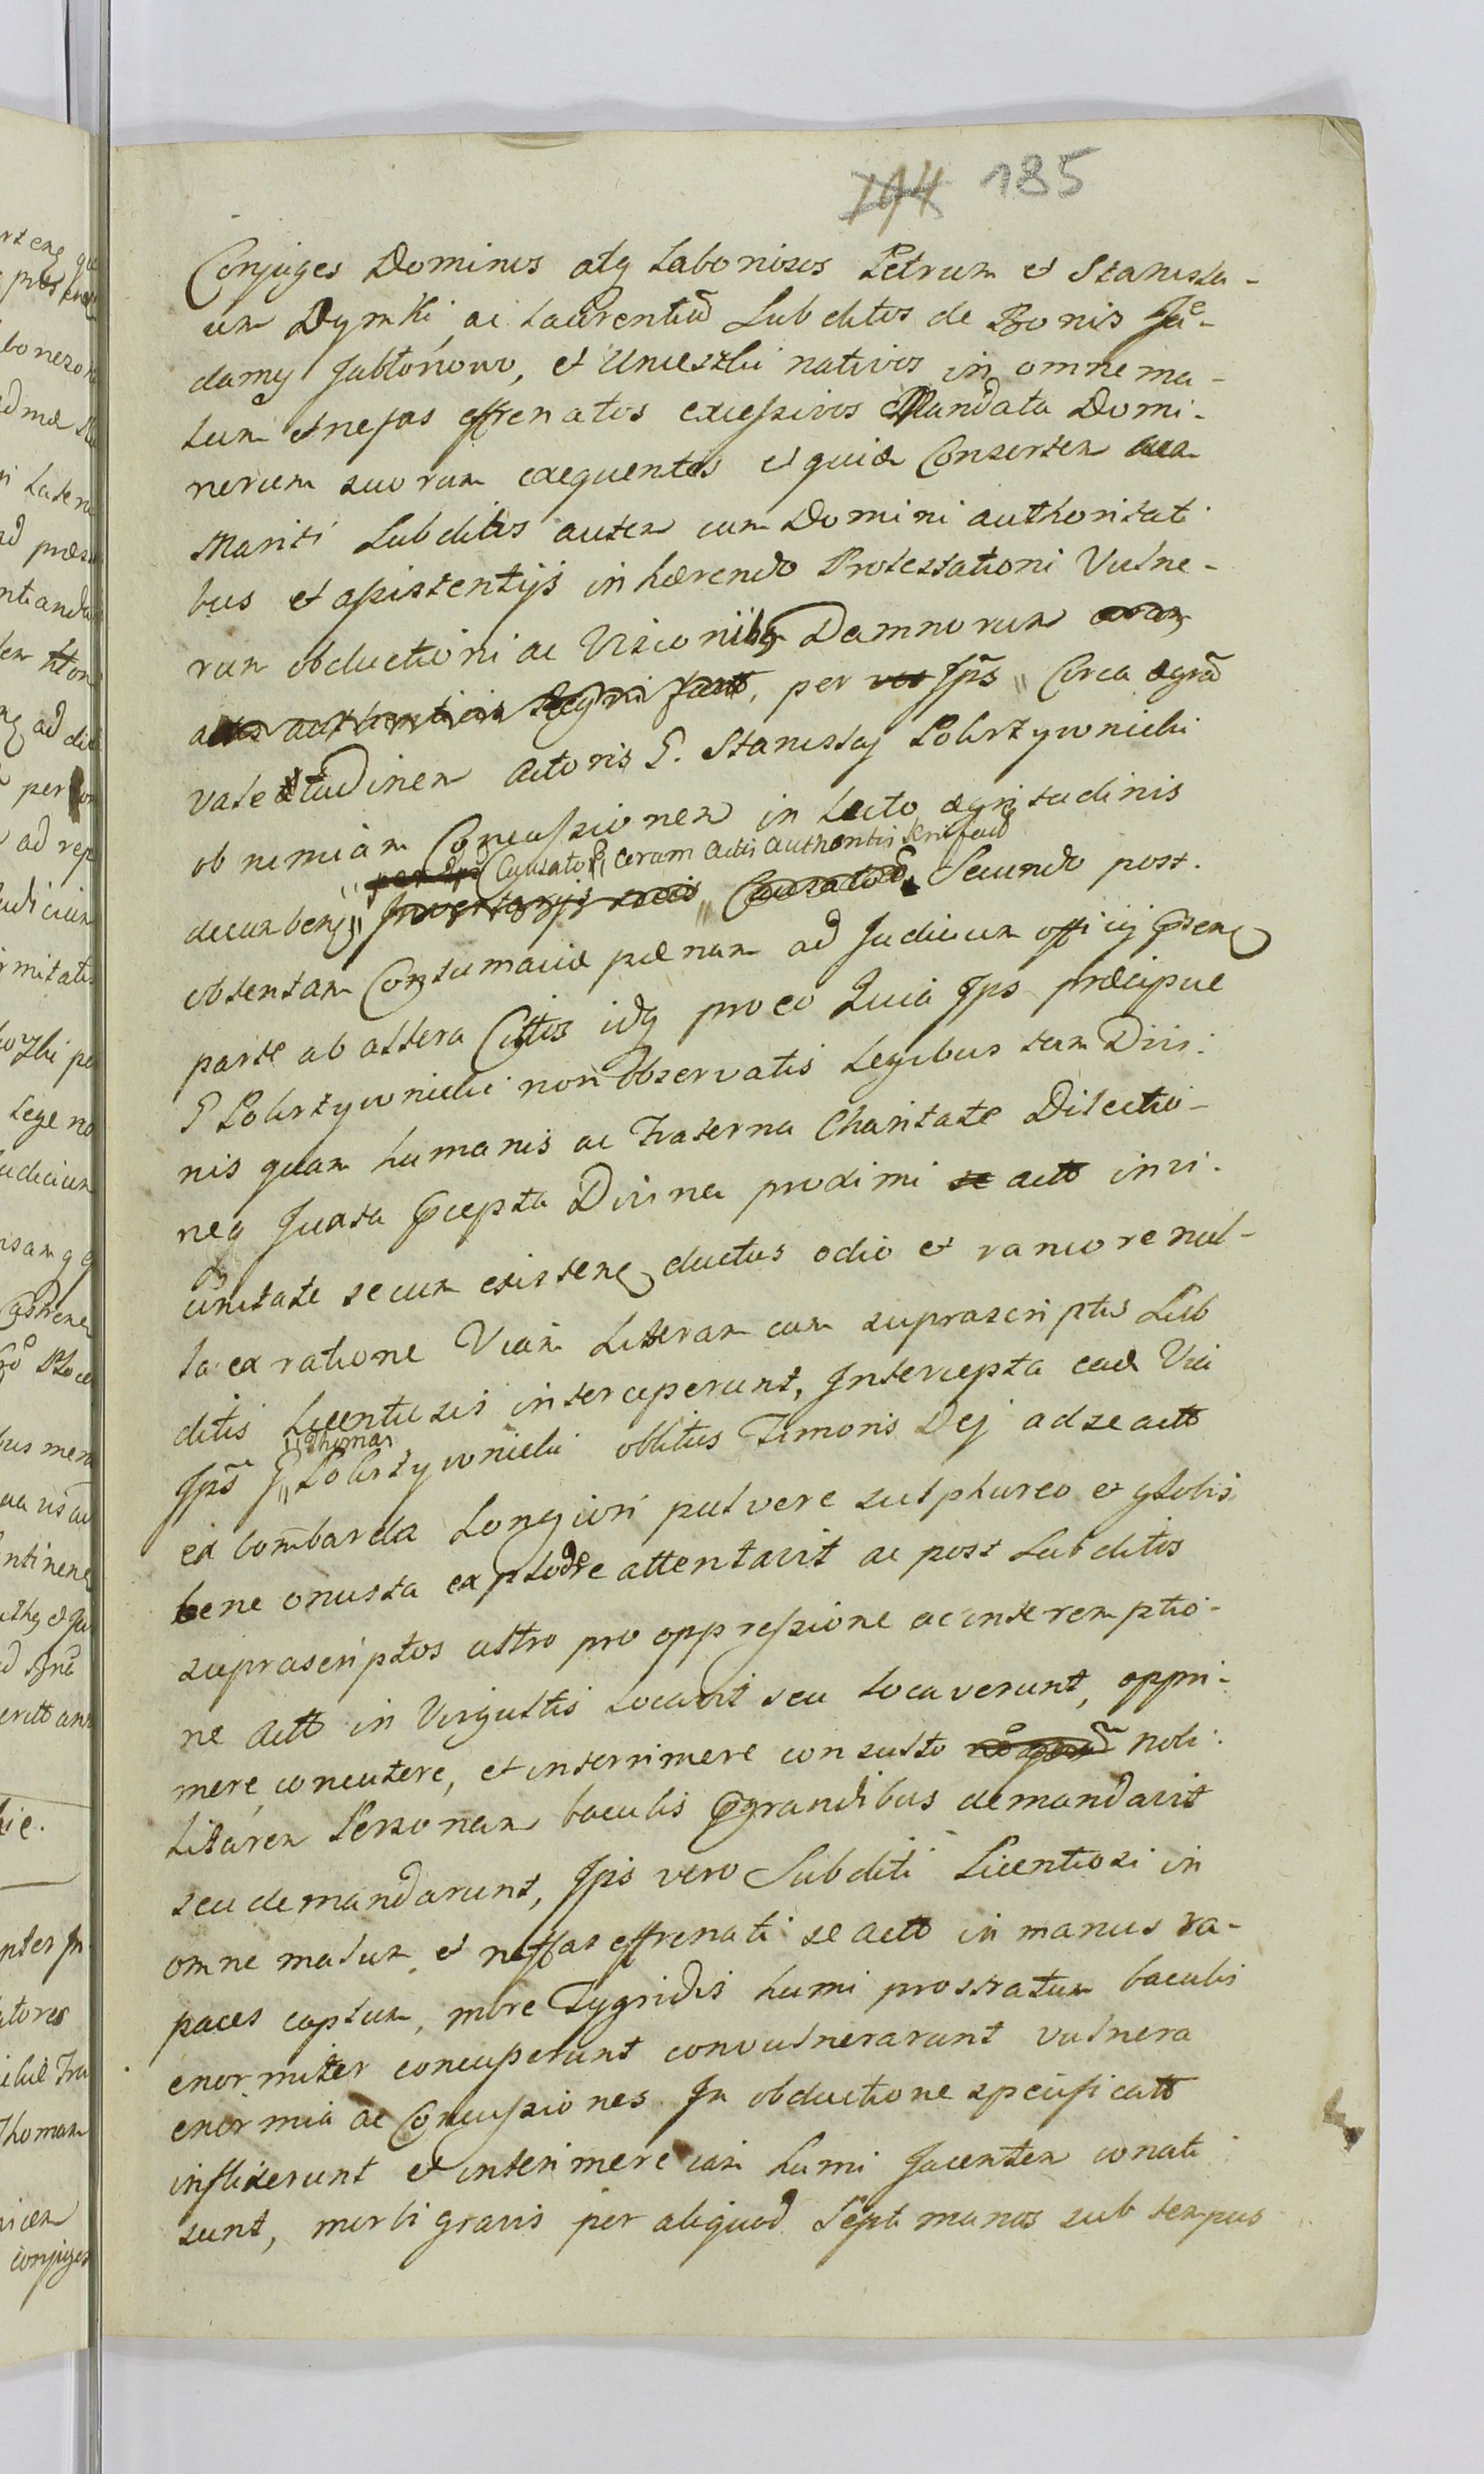 185
Conjuges Dominos atq Laboriosos Petrum et Stanisla-
um Dymki ac Laurentiū Subditos de Bonis
damq Jabłonowo, et Unieszki nativos in omne ma-
lum et nefas effrenatos excessivos Mandata Domi-
norum suorum exequentes et quidē Consortem
Mariti Subditos autem cum Domini authoritati-
bus et assistentijs inhærendo Protestationi Vulne-
rum obductioni ac Visionibq Damnorum
per Ipōs Circa ægrā
valetudinem Actoris G. Stanislaj Pokrzywnicki
ob nimiam Concussionem in Lecto ægritudinis
Causatoꝝ coram Actis authenticis
decumbenq Secundo post
obtentam Contumaciæ pænam ad Judicium officij Præsenq
parte ab altera Cittos idq pro eo Quia Ips præcipue
G Pokrzywnicki non observatis Legibus tam Divi-
nis quam humanis ac Fraterna Charitate Dilectio-
neq Juxta Præcepta Divina proximi actto in vi-
cinitate secum existenq ductus odio et rancore nul-
la ex ratione Viam Liberam cum suprascriptis Sub
ditis Licentiosis interceperunt, Intercepta eadē Via
Thomas
Ips G Pokrzywnicki oblitus Timoris Dej ad se actto
ex bombarda Longiori pulvere sulphureo et globis
bene onusta explodere attentavit ac post Subditos
suprascriptos ultro pro oppressione ac interemptio-
ne Actto in Virgultis locavit seu locaverunt, oppri-
mere, concutere, et interimere consulto nobi-
litarem Personam baculis prægrandibus demandavit
seu demandarunt, Ips vero Subditi Licentiosi in
omne malum et neffas effrenati se actto in manus ra-
paces captum, more Tygridis humi prostratum baculis
enormiter concusserunt convulnerarunt vulnera
enormia ac Concussiones In obductione specificatt
inflixerunt et interimere iam humi Jacentem conati
sunt, morbi gravis per aliquod Septimanas sub tempus